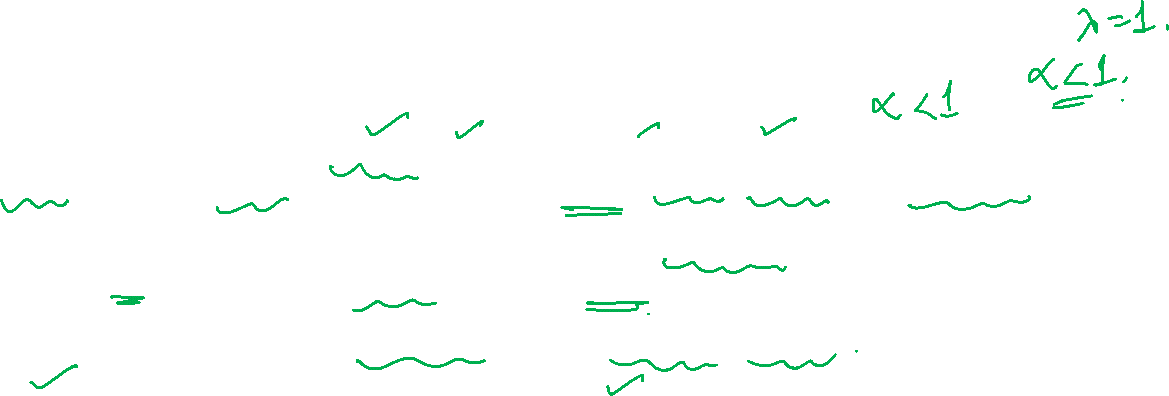 λ=1.
α<1.
α<1